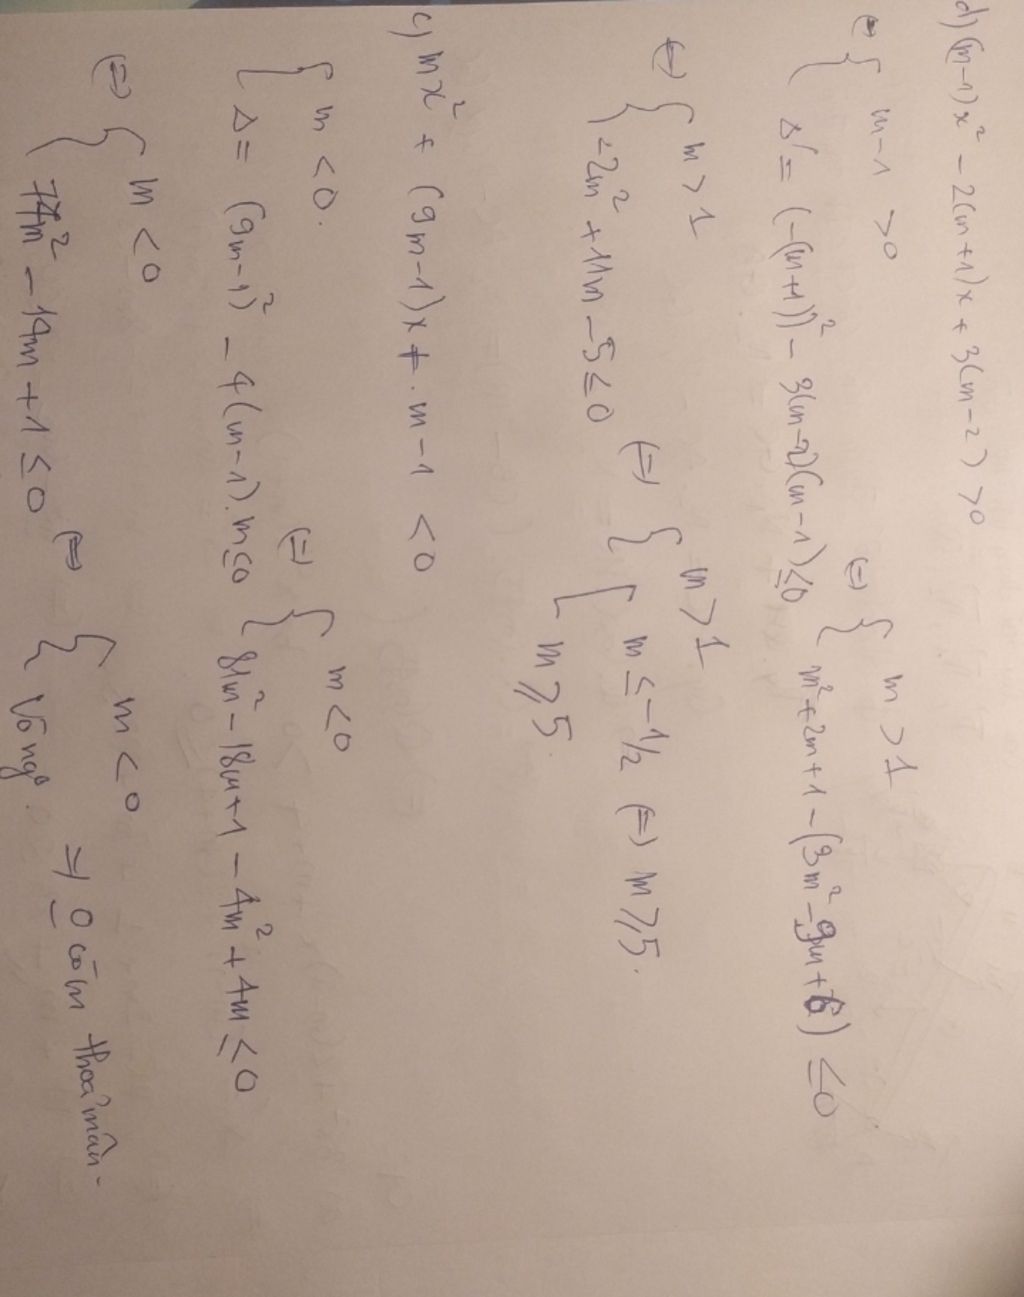 d) (m-1)x² - 2(m+1)x + 3(m-2) > 0
(=) { m-1 > 0
Δ' = (-(m+1))² - 3(m-2)(m-1) ≤ 0
(=) { m > 1
m² + 2m + 1 - (3m² - 9m + 6) ≤ 0
(=) { m > 1
-2m² + 11m - 5 ≤ 0
(=) { m > 1
[ m ≤ -1/2
m ≥ 5.
(=) m ≥ 5.
c) mx² + (9m-1)x + m-1 < 0
{ m < 0.
Δ = (9m-1)² - 4(m-1).m ≤ 0
(=) { m < 0
81m² - 18m + 1 - 4m² + 4m ≤ 0
(=) { m < 0
77m² - 14m + 1 ≤ 0
(=) { m < 0
Vô ngo.
=> 0 có m thoả mãn.